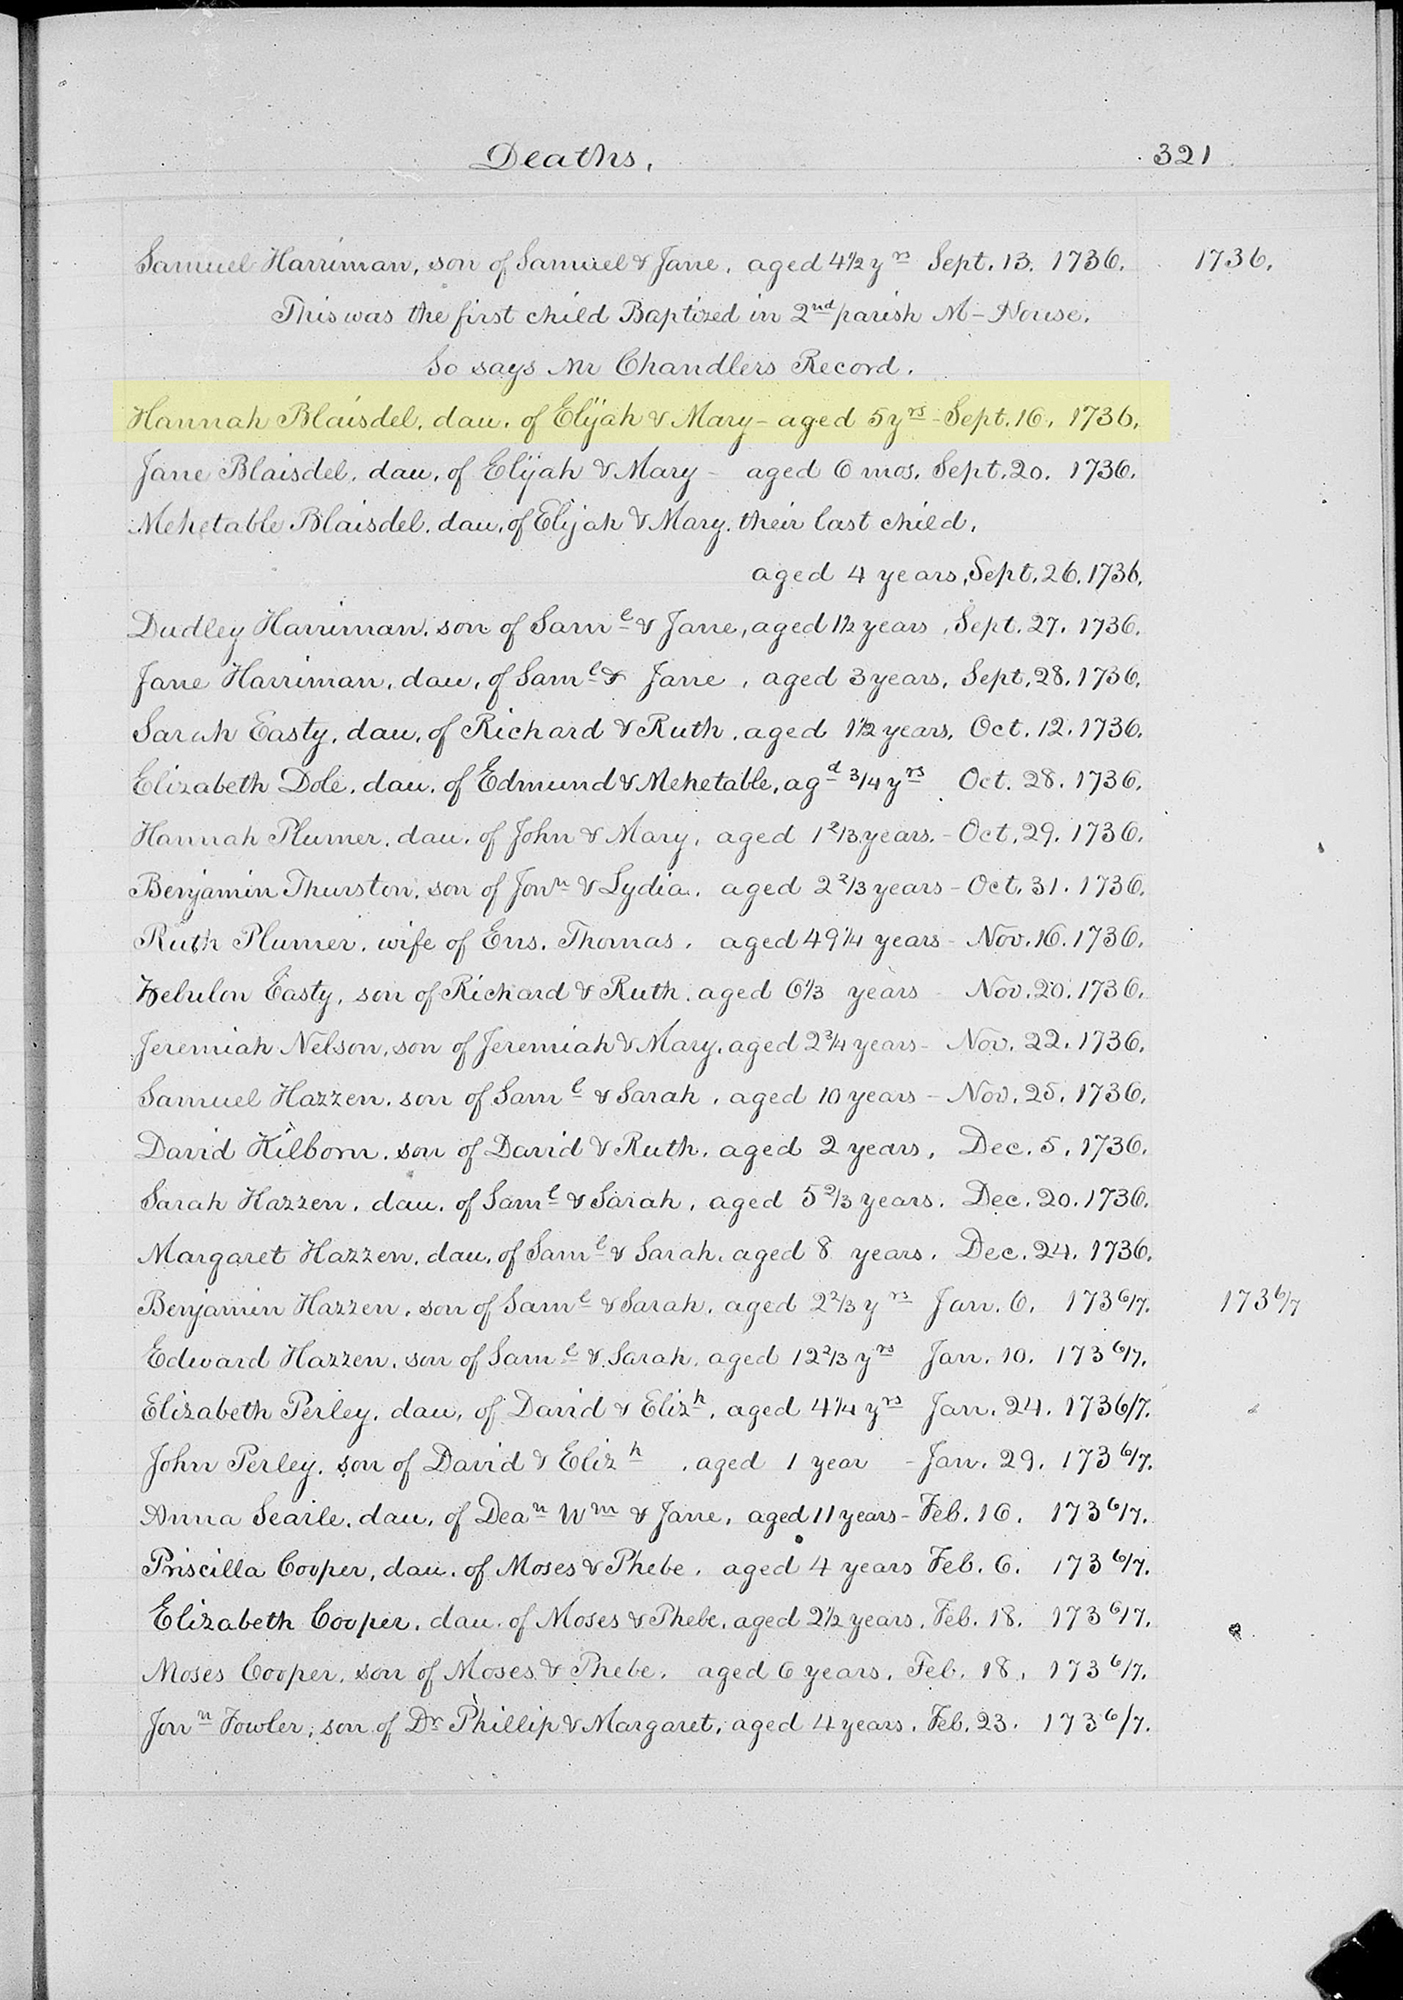 Deaths. 321
Samuel Harriman, son of Samuel & Jane, aged 4½ yrs Sept. 13. 1736. 1736.
This was the first child Baptized in 2nd parish M-House.
So says Mr Chandlers Record.
Hannah Blaisdel, dau. of Elijah & Mary - aged 5 yrs - Sept. 16. 1736.
Jane Blaisdel, dau. of Elijah & Mary - aged 6 mos. Sept. 20. 1736.
Mehetable Blaisdel, dau. of Elijah & Mary. their last child,
aged 4 years, Sept. 26. 1736.
Dudley Harriman, son of Saml & Jane, aged 1½ years, Sept. 27. 1736.
Jane Harriman, dau. of Saml & Jane, aged 3 years, Sept. 28. 1736.
Sarah Easty, dau. of Richard & Ruth, aged 1½ years, Oct. 12. 1736.
Elizabeth Dole, dau. of Edmund & Mehetable, agd 3/4 yrs Oct. 28. 1736.
Hannah Plumer, dau. of John & Mary, aged 1 2/3 years. - Oct. 29. 1736.
Benjamin Thurston, son of Jonn & Lydia, aged 2 2/3 years - Oct. 31. 1736.
Ruth Plumer, wife of Ens. Thomas, aged 49 1/4 years - Nov. 16. 1736.
Zebulon Easty, son of Richard & Ruth, aged 6 1/3 years - Nov. 20. 1736.
Jeremiah Nelson, son of Jeremiah & Mary, aged 2 3/4 years - Nov. 22. 1736.
Samuel Hazzen, son of Saml & Sarah, aged 10 years - Nov. 25. 1736.
David Kilborn, son of David & Ruth, aged 2 years, Dec. 5. 1736.
Sarah Hazzen, dau. of Saml & Sarah, aged 5 2/3 years. Dec. 20. 1736.
Margaret Hazzen, dau. of Saml & Sarah, aged 8 years. Dec. 24. 1736.
Benjamin Hazzen, son of Saml & Sarah, aged 2 2/3 yrs Jan. 6. 1736/7. 1736/7
Edward Hazzen, son of Saml & Sarah, aged 12 2/3 yrs Jan. 10. 1736/7.
Elizabeth Perley, dau. of David & Elizh, aged 4 1/4 yrs Jan. 24. 1736/7.
John Perley, son of David & Elizh, aged 1 year - Jan. 29. 1736/7.
Anna Searle, dau. of Dean Wm & Jane, aged 11 years - Feb. 16. 1736/7.
Priscilla Cooper, dau. of Moses & Phebe, aged 4 years Feb. 6. 1736/7.
Elizabeth Cooper, dau. of Moses & Phebe, aged 2½ years, Feb. 18. 1736/7.
Moses Cooper, son of Moses & Phebe, aged 6 years, Feb. 18, 1736/7.
Jonn Fowler, son of Dr Phillip & Margaret, aged 4 years, Feb. 23. 1736/7.